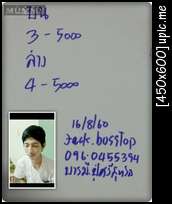 บน
3 - 5000
ล่าง
4 - 5000
16/8/60
Jack.bosstop
096-0455394
[450x600] upic.me